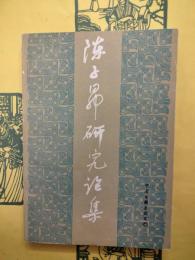 陈子昂研究论集